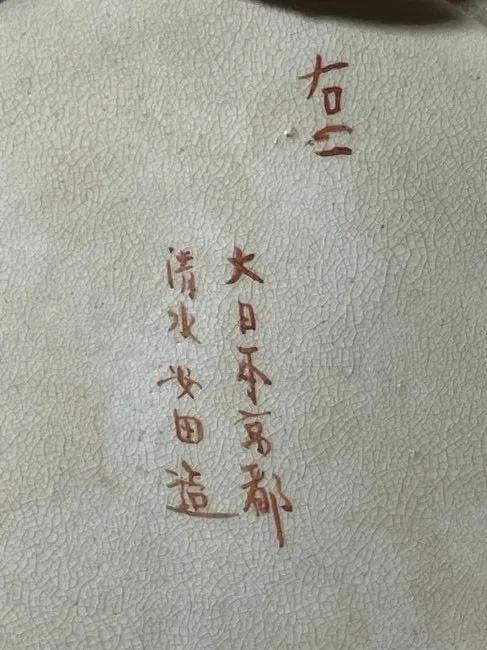 右二
大日本京都
清水安田造